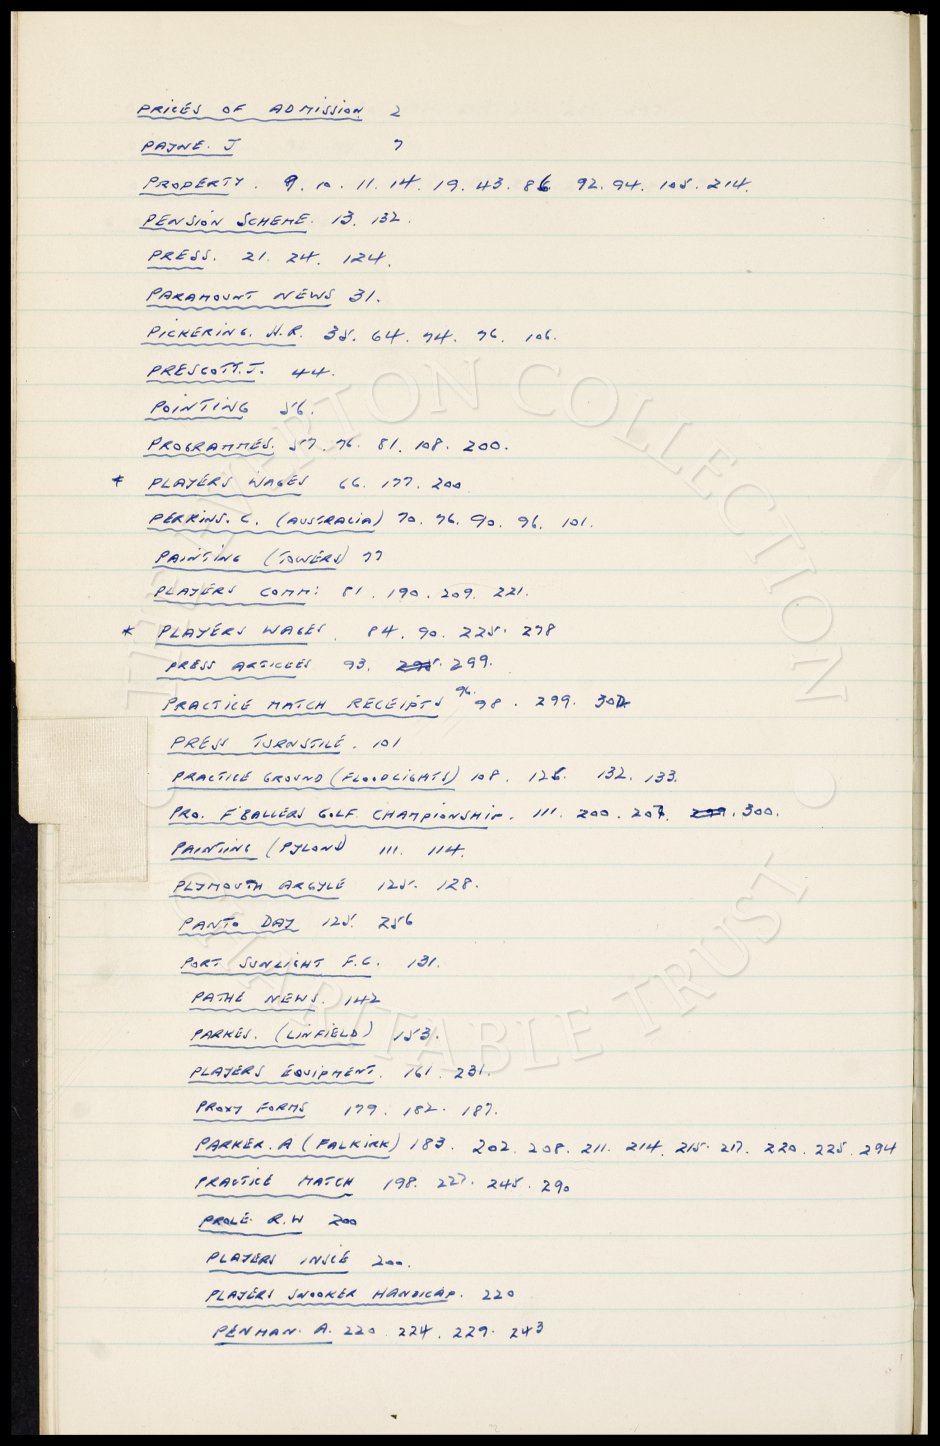 PRICES OF ADMISSION 2
PAYNE. J 7
PROPERTY. 9. 10. 11. 14. 19. 43. 86 92. 94. 105. 214.
PENSION SCHEME. 13. 132.
PRESS. 21. 24. 124.
PARAMOUNT NEWS 31.
PICKERING. N.R. 35. 64. 74. 76. 106.
PRESCOTT. J. 44.
POINTING 56.
PROGRAMMES. 57. 76. 81. 108. 200.
* PLAYERS WAGES 66. 177. 200
PERKINS. C. (AUSTRALIA) 70. 76. 90. 96. 101.
PAINTING (TOWERS) 77
PLAYERS COMM: 81. 190. 209. 221.
* PLAYERS WAGES. 84. 90. 225. 278
PRESS ARTICLES 93. 299.
PRACTICE MATCH RECEIPTS 96. 98. 299. 302
PRESS TURNSTILE. 101
PRACTICE GROUND (FLOODLIGHTS) 108. 126. 132. 133.
PRO. F'BALLERS GOLF CHAMPIONSHIP. 111. 200. 207. 299. 300.
PAINTING (PYLONS) 111. 114.
PLYMOUTH ARGYLE 125. 128.
PANTO DAY 125. 256
PORT SUNLIGHT F.C. 131.
PATHE NEWS. 142
PARKES. (LINFIELD) 153.
PLAYERS EQUIPMENT. 161. 231.
PROXY FORMS 179. 182. 187.
PARKER. A (FALKIRK) 183. 202. 208. 211. 214. 215. 217. 220. 225. 294
PRACTICE MATCH 198. 227. 245. 290
PROLE. R.W 200
PLAYERS INSCE 200.
PLAYERS SNOOKER HANDICAP. 220
PENMAN. A. 220. 224. 229. 243
THE EVERTON COLLECTION
CHARITABLE TRUST